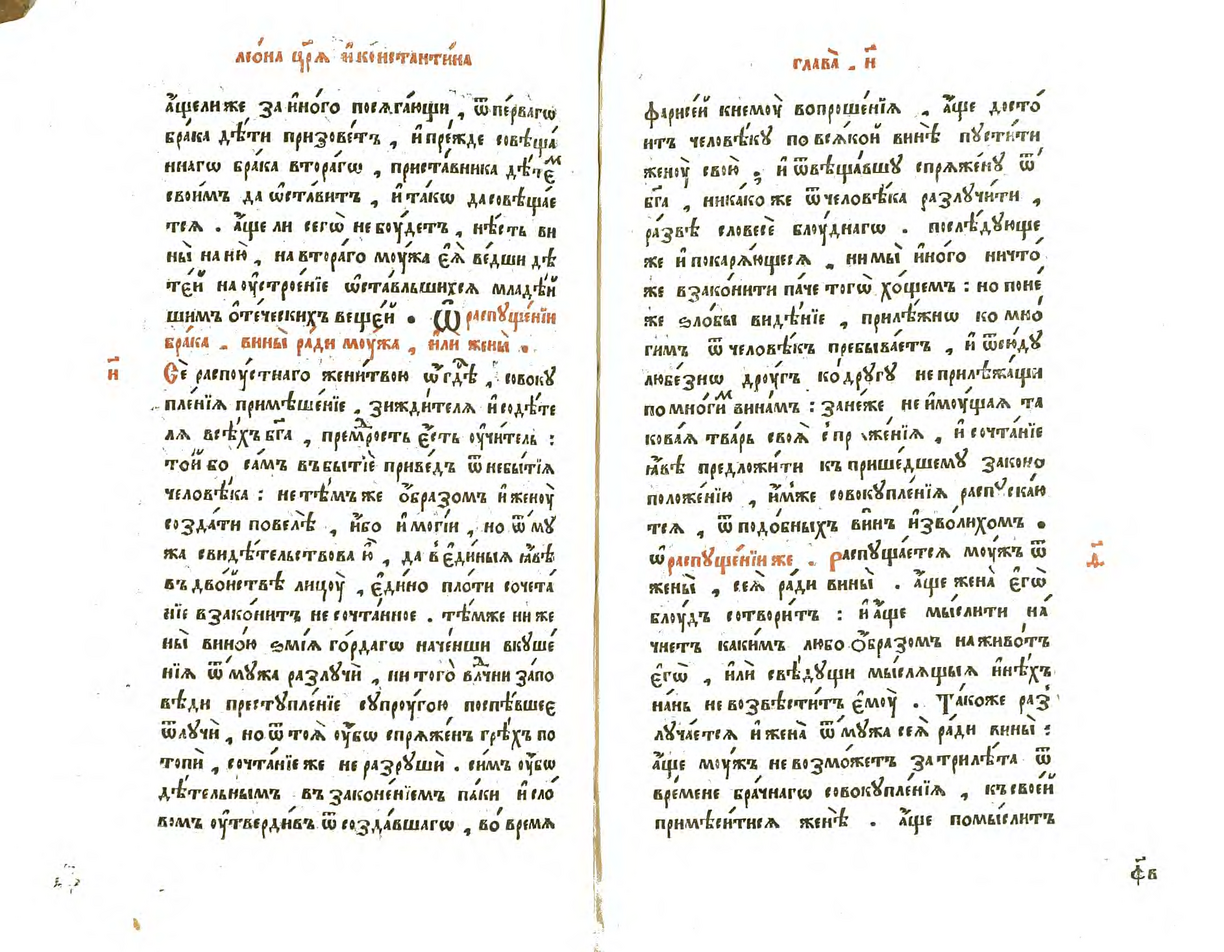 леѡ́на цр҃ѧ и҆ константи́на
а҆́ще ли же за и҆но́го посѧга́ющи , ѿ пе́рвагѡ
бра́ка дѣ́ти призове́тъ , и҆ пре́жде совѣща́
ннагѡ бра́ка втора́гѡ , приста́вника дѣ́тєм
свои́мъ да ѡ҆ста́витъ , и҆ та́кѡ да совѣща́е
тсѧ . а҆́ще ли сегѡ̀ не бꙋ́детъ , нѣ́сть ви
ны̀ на ню̀ , на втора́го мꙋ́жа є҆ѧ̀ ве́дши дѣ
те́й на ѹ҆строе́нїе ѡ҆ста́вльшихсѧ младѣ́й
шимъ ѻ҆те́ческихъ веще́й . Ѿ распꙋще́нїи
бра́ка . вины̀ ра́ди мꙋ́жа , и҆лѝ жены̀ .
и҃
Сѐ распꙋ́стнаго жени́твою ѿ гдⷭ҇а̀ , совокꙋ
пле́нїѧ примѣше́нїе , зижди́телѧ и҆ содѣ́те
лѧ всѣ́хъ бг҃а , премⷣрость є҆́сть ѹ҆чи́тель :
то́й бо са́мъ въ бытїѐ приве́дъ ѿ небытїѧ̀
человѣ́ка : не тѣ́мъ же ѻ҆́бразомъ и҆ женꙋ̀
созда́ти повелѣ̀ , и҆́бо и҆ могі́и , но ѿ мꙋ́
жа свидѣ́тельствова ю҆̀ , да в̾ є҆ди́ныѧ ꙗ҆́вѣ
въ дво́йствѣ лицꙋ̀ , є҆ди́но пло́ти сочета́
нїе в̾зако́нитъ несочта́нное . тѣ́мже ни же
ны̀ вино́ю ѕмі́ѧ го́рдагѡ наче́нши вкꙋше́
нїѧ ѿ мꙋ́жа разлꙋчѝ , ни того̀ влⷣчни за́по
вѣди престꙋпле́нїе сꙋпрꙋ́гою поспѣ́вшее
ѿлꙋчѝ , но ѿ тоѧ̀ ѹ҆́бѡ спрѧже́нъ грѣ́хъ по
топѝ , сочта́нїе же не разрꙋшѝ . си́мъ ѹ҆́бѡ
дѣ́тельнымъ в̾законе́нїемъ па́ки и҆ сло́
вомъ ѹ҆тверди́въ ѿ созда́вшагѡ , во вре́мѧ
глава̀ . и҃
фарисе́й к немꙋ̀ вопроше́нїѧ , а҆́ще досто́
итъ человѣ́кꙋ по всѧ́кой винѣ̀ пꙋсти́ти
женꙋ̀ свою̀ ; и҆ ѿвѣща́вшꙋ спрѧже́нꙋ ѿ
бг҃а , ника́ко же ѿ человѣ́ка разлꙋчи́ти ,
ра́звѣ словесѐ блꙋ́днагѡ . послѣ́дꙋюще
же и҆ покарѧ́ющесѧ , ни мы̀ и҆но́го ничто́
же в̾закони́ти па́че тогѡ̀ хо́щемъ : но поне́
же ѕло́бы ви́дѣнїе , прилѣ́жнѡ ко мно́
гимъ ѿ человѣ́къ пребыва́етъ , и҆ ѿсю́дꙋ
любе́знѡ дрꙋ́гъ ко дрꙋ́гꙋ не прилѣжа́щи
по мно́гим вина́мъ : зане́же не и҆мꙋ́щаѧ та
кова́ѧ тва́рь своѧ̀ спрѧже́нїѧ , и҆ сочта́нїе
ꙗ҆́вѣ предложи́ти къ прише́дшемꙋ зако́но
положе́нїю , и҆́мже совокꙋпле́нїѧ распꙋска́ю
тсѧ , ѿ подо́бныхъ ви́нъ и҆зво́лихомъ .
ѡ҆ распꙋще́нїи же . Распꙋща́етсѧ мꙋ́жъ ѿ
д҃
жены̀ , сеѧ̀ ра́ди вины̀ . а҆́ще жена̀ є҆гѡ̀
блꙋ́дъ сотвори́тъ : и҆ а҆́ще мы́слити на́
чнетъ каки́мъ любо ѻ҆́бразомъ на живо́тъ
є҆гѡ̀ , и҆лѝ свѣ́дꙋщи мы́слѧщыѧ и҆нѣ́хъ
на́нь не возвѣсти́тъ є҆мꙋ̀ . Та́коже раз
лꙋча́етсѧ и҆ жена̀ ѿ мꙋ́жа сеѧ̀ ра́ди вины̀ :
а҆́ще мꙋ́жъ не возмо́жетъ за трилѣ́та ѿ
вре́мене бра́чнагѡ совокꙋпле́нїѧ , къ свое́й
примѣси́тисѧ женѣ̀ . а҆́ще помы́слитъ
ф҃в